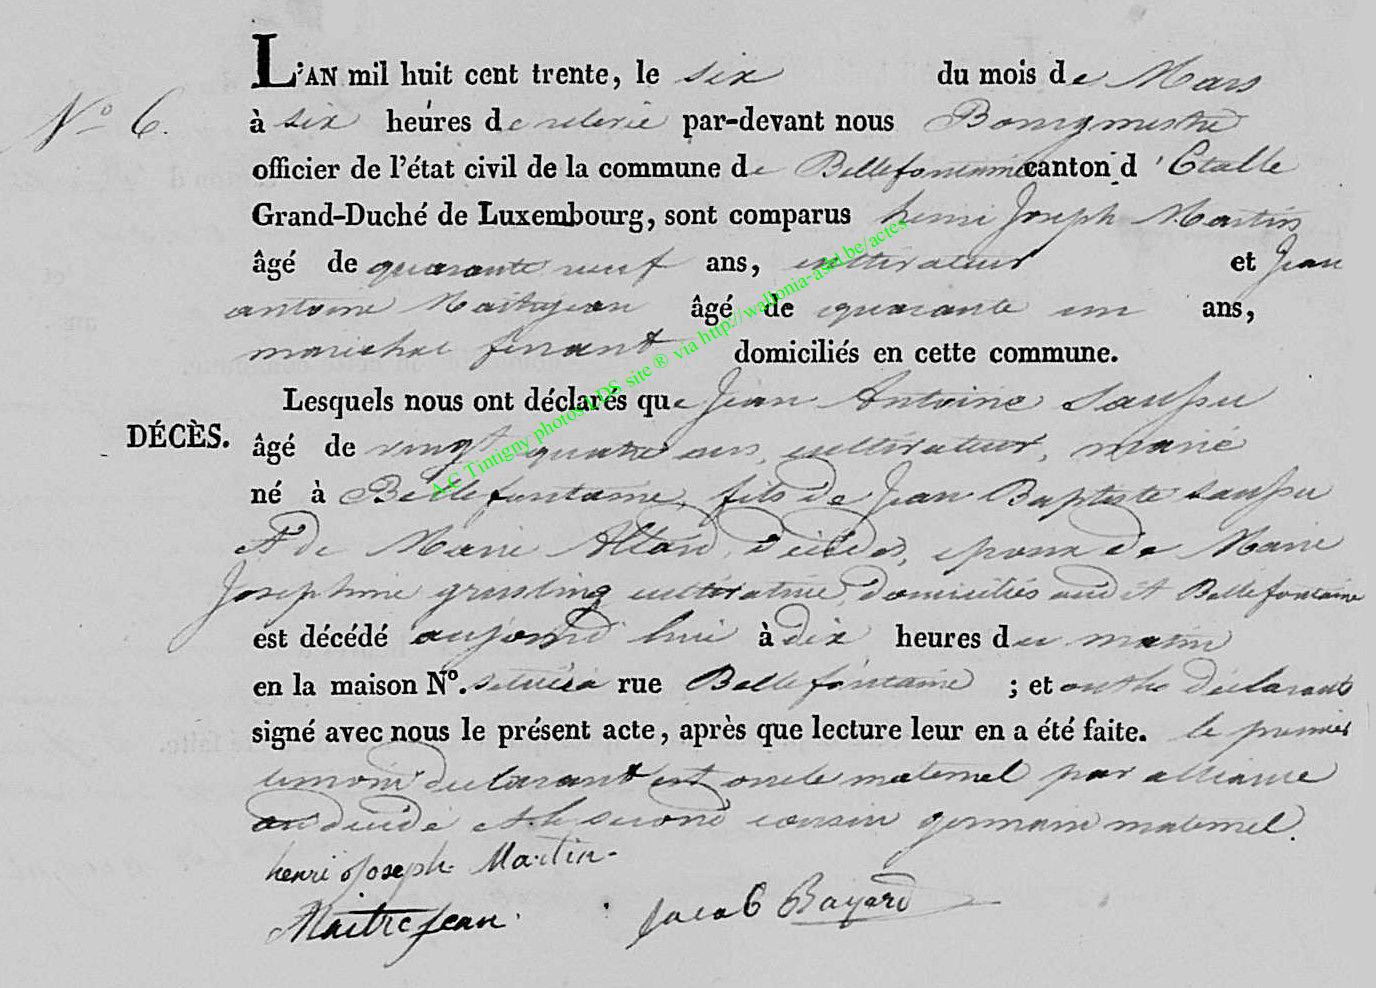 L'AN mil huit cent trente, le six du mois de Mars
N° 6. à six heures de relevée par-devant nous Bourgmestre
officier de l'état civil de la commune de Bellefontaine canton d'Etalle
Grand-Duché de Luxembourg, sont comparus henri Joseph Martin
âgé de quarante neuf ans, cultivateur et Jean
antoine Maitrejean âgé de quarante un ans,
marichal ferrant domiciliés en cette commune.
Lesquels nous ont déclarés que Jean Antoine Saupu
DÉCÈS. âgé de vingt quatre ans, cultivateur, marié
né à Bellefontaine, fils de Jean Baptiste Saupu
et de Marie Allard, décédés, epoux de Marie
Josephine cultivatrice, domiciliés audit Bellefontaine
est décédé aujourd'hui à dix heures du matin
en la maison N°. située à rue Bellefontaine ; et ont les déclarants
signé avec nous le présent acte, après que lecture leur en a été faite. le premier
temoin declarant est oncle maternel par alliance
au décédé et le second cousin germain maternel.
henri Joseph Martin
MaitreJean. Jacob Bayard
A.C Tintigny photos LDS site ® via http://wallonia-asbl.be/actes